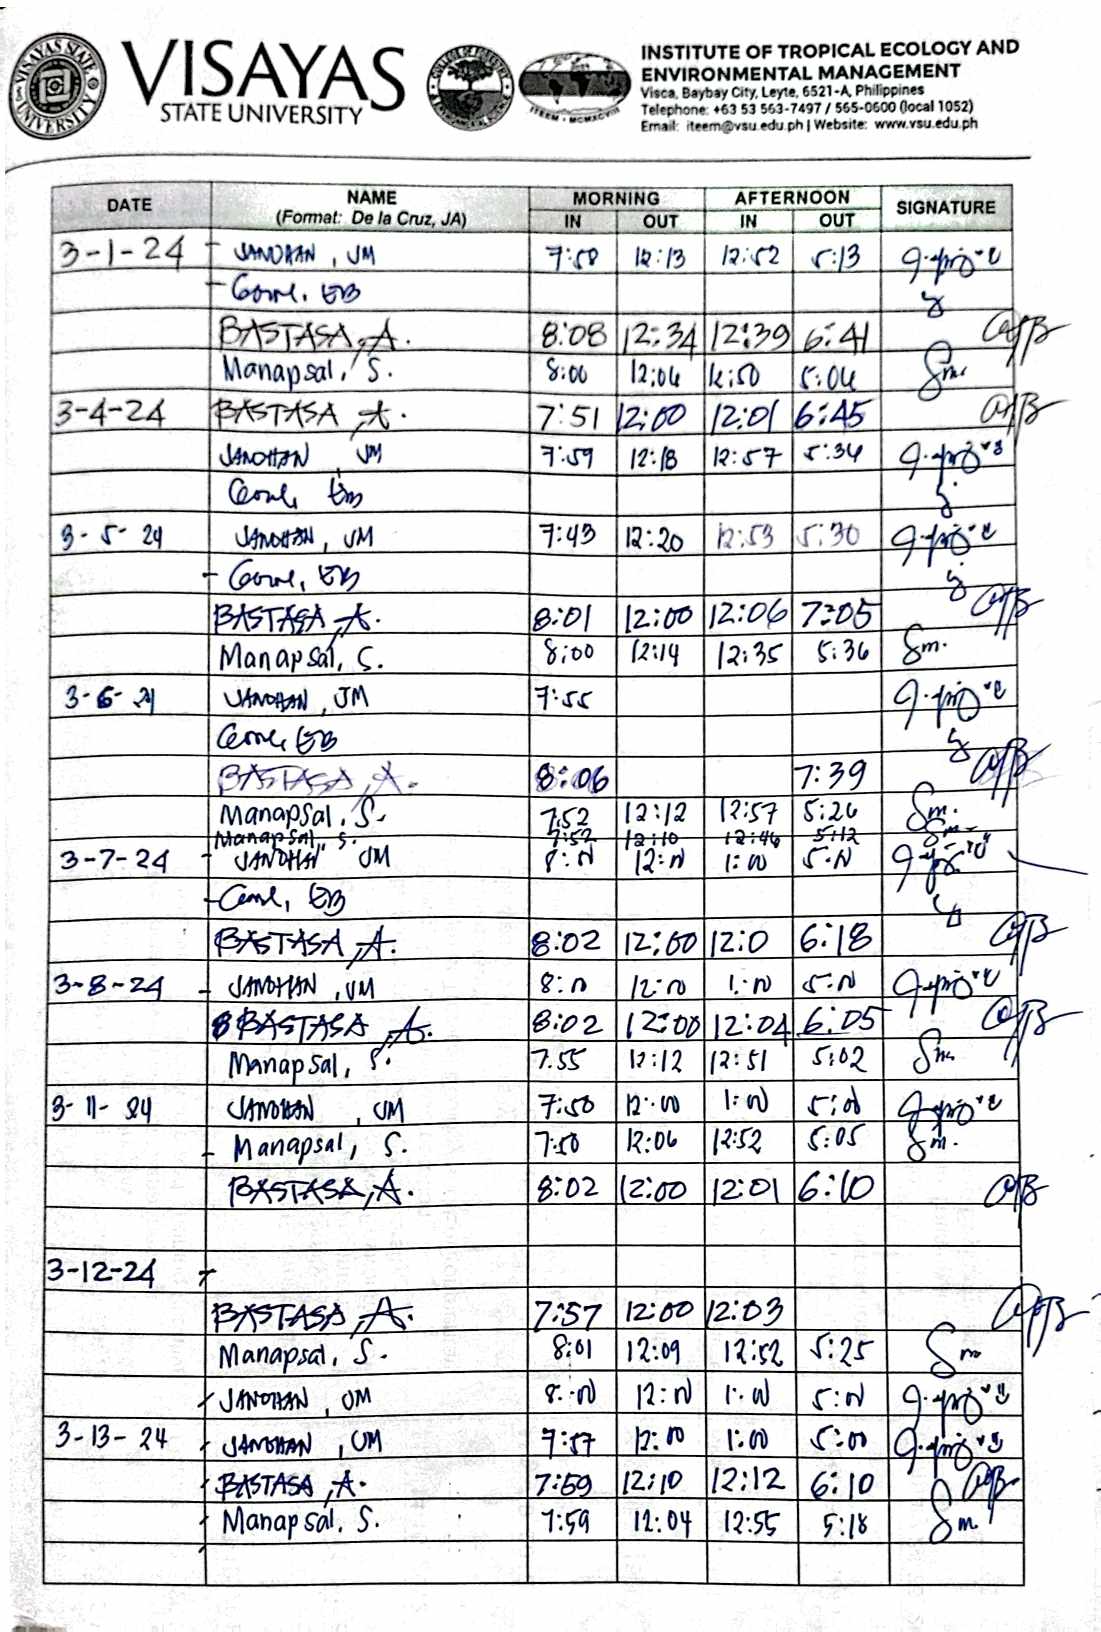 VISAYAS
STATE UNIVERSITY
INSTITUTE OF TROPICAL ECOLOGY AND
ENVIRONMENTAL MANAGEMENT
Visca, Baybay City, Leyte, 6521-A, Philippines
Telephone: +63 53 563-7497 / 565-0600 (local 1052)
Email: iteem@vsu.edu.ph | Website: www.vsu.edu.ph
DATE NAME (Format: De la Cruz, JA) MORNING IN OUT AFTERNOON IN OUT SIGNATURE
3-1-24 JANDHAN, JM 7:58 12:13 12:52 5:13
EB
BASTASA, A. 8:08 12:34 12:39 6:41
Manapsal, S. 8:00 12:06 12:50 5:06
3-4-24 BASTASA, A. 7:51 12:00 12:01 6:45
JANDHAN, JM 7:59 12:18 12:57 5:34

3-5-24 JANDHAN, JM 7:43 12:20 12:53 5:30
EB
BASTASA, A. 8:01 12:00 12:06 7:05
Manapsal, S. 8:00 12:14 12:35 5:36
3-6-24 JANDHAN, JM 7:55
EB
BASTASA, A. 8:06 7:39
Manapsal, S. 7:52 12:12 12:57 5:26
Manapsal, S. 7:52 12:10 12:46 5:12
3-7-24 JANDHAN JM 8:00 12:00 1:00 5:00
EB
BASTASA, A. 8:02 12:00 12:0 6:18
3-8-24 JANDHAN, JM 8:00 12:00 1:00 5:00
BASTASA, A. 8:02 12:00 12:04 6:05
Manapsal, S. 7:55 12:12 12:51 5:02
3-11-24 JANDHAN, JM 7:50 12:00 1:00 5:00
Manapsal, S. 7:50 12:06 12:52 5:05
BASTASA, A. 8:02 12:00 12:01 6:10
3-12-24
BASTASA, A. 7:57 12:00 12:03
Manapsal, S. 8:01 12:09 12:52 5:25
JANDHAN, JM 8:00 12:00 1:00 5:00
3-13-24 JANDHAN, JM 7:57 12:00 1:00 5:00
BASTASA, A. 7:59 12:10 12:12 6:10
Manapsal, S. 7:59 12:04 12:55 5:18